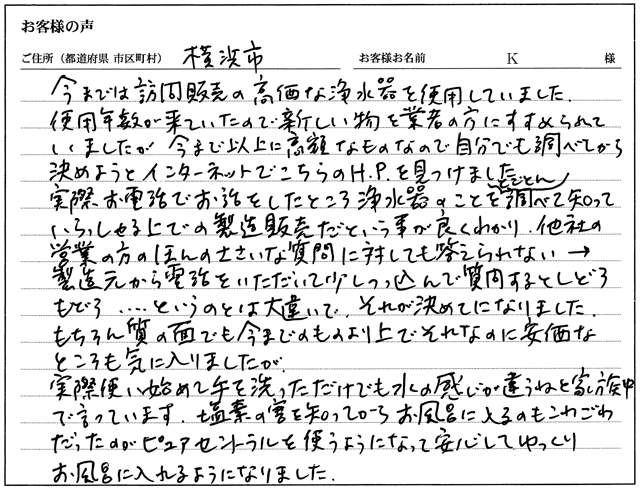 お客様の声
ご住所（都道府県 市区町村） 横浜市 お客様お名前 K 様
今までは訪問販売の高価な浄水器を使用していました.
使用年数が来ていたので新しい物を業者の方にすすめられて
いましたが 今まで以上に高額なものなので自分でも調べてから
決めようとインターネットでこちらのH.P.を見つけました.
とことん
実際お電話でお話をしたところ浄水器のことを調べて知って
いらっしゃる上での製造販売だという事が良くわかり. 他社の
営業の方のほんのささいな質問に対しても答えられない→
製造元から電話をいただいて少しつっ込んで質問するとしどろ
もどろ ‥‥‥というのとは大違いで. それが決めてになりました.
もちろん質の面でも今までのものより上でそれなのに安価な
ところも気に入りましたが.
実際使い始めて手を洗っただけでも水の感じが違うねと家族中
で言っています. 塩素の害を知ってからお風呂に入るのもこわごわ
だったのがピュアセントラルを使うようになって安心してゆっくり
お風呂に入れるようになりました.